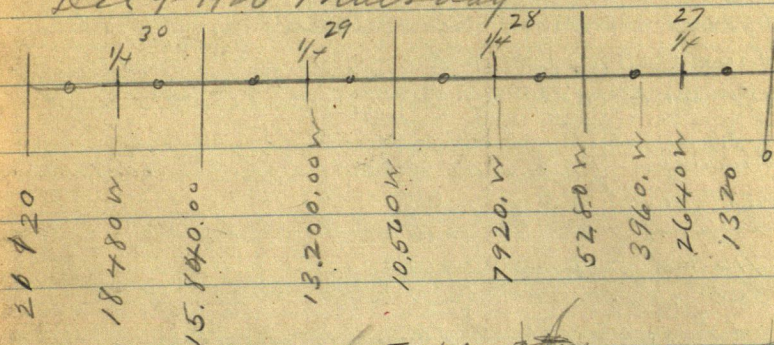 30 29 28 27
1/4 1/4 1/4 1/4
18480 W
15.840.00
13.200.00 W
10.560 W
7920. W
5280 W
3960. W
2640 W
1320
0